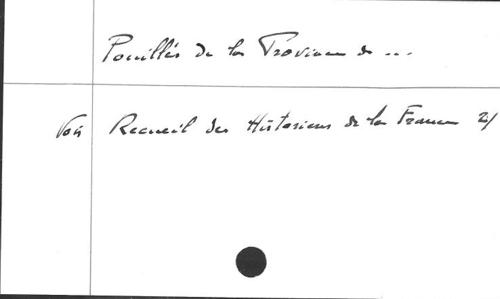 Pouillés de la Province de ...
Voir Recueil des Historiens de la France 2/